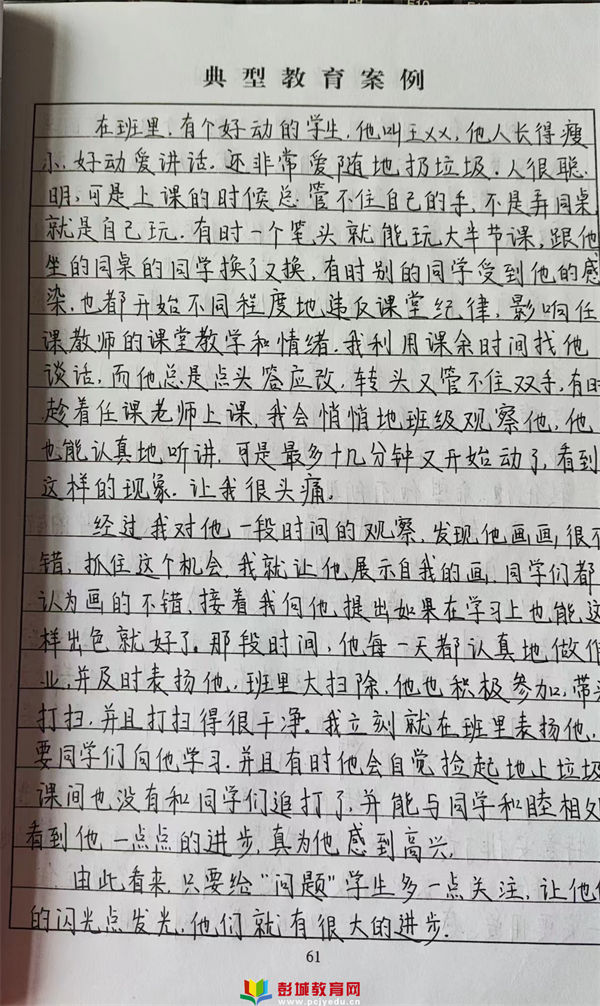 典型教育案例
在班里,有个好动的学生,他叫王××,他人长得瘦
小,好动爱讲话.还非常爱随地扔垃圾.人很聪
明,可是上课的时候总管不住自己的手,不是弄同桌,
就是自己玩.有时一个笔头就能玩大半节课,跟他
坐的同桌的同学换了又换,有时别的同学受到他的感
染,也都开始不同程度地违反课堂纪律,影响任
课教师的课堂教学和情绪.我利用课余时间找他
谈话,而他总是点头答应改,转头又管不住双手,有时
趁着任课老师上课,我会悄悄地班级观察他,他
也能认真地听讲,可是最多十几分钟又开始动了,看到
这样的现象.让我很头痛.
经过我对他一段时间的观察,发现他画画很不
错,抓住这个机会,我就让他展示自我的画,同学们都
认为画的不错,接着我向他提出如果在学习上也能这
样出色就好了。那段时间,他每一天都认真地做作
业,并及时表扬他,班里大扫除,他也积极参加,带头
打扫,并且打扫得很干净。我立刻就在班里表扬他,
要同学们向他学习.并且有时他会自觉捡起地上垃圾
课间也没有和同学们追打了,并能与同学和睦相处
看到他一点点的进步,真为他感到高兴,
由此看来,只要给“问题”学生多一点关注,让他们
的闪光点发光,他们就有很大的进步.
61
彭城教育网
www.pcjyedu.cn